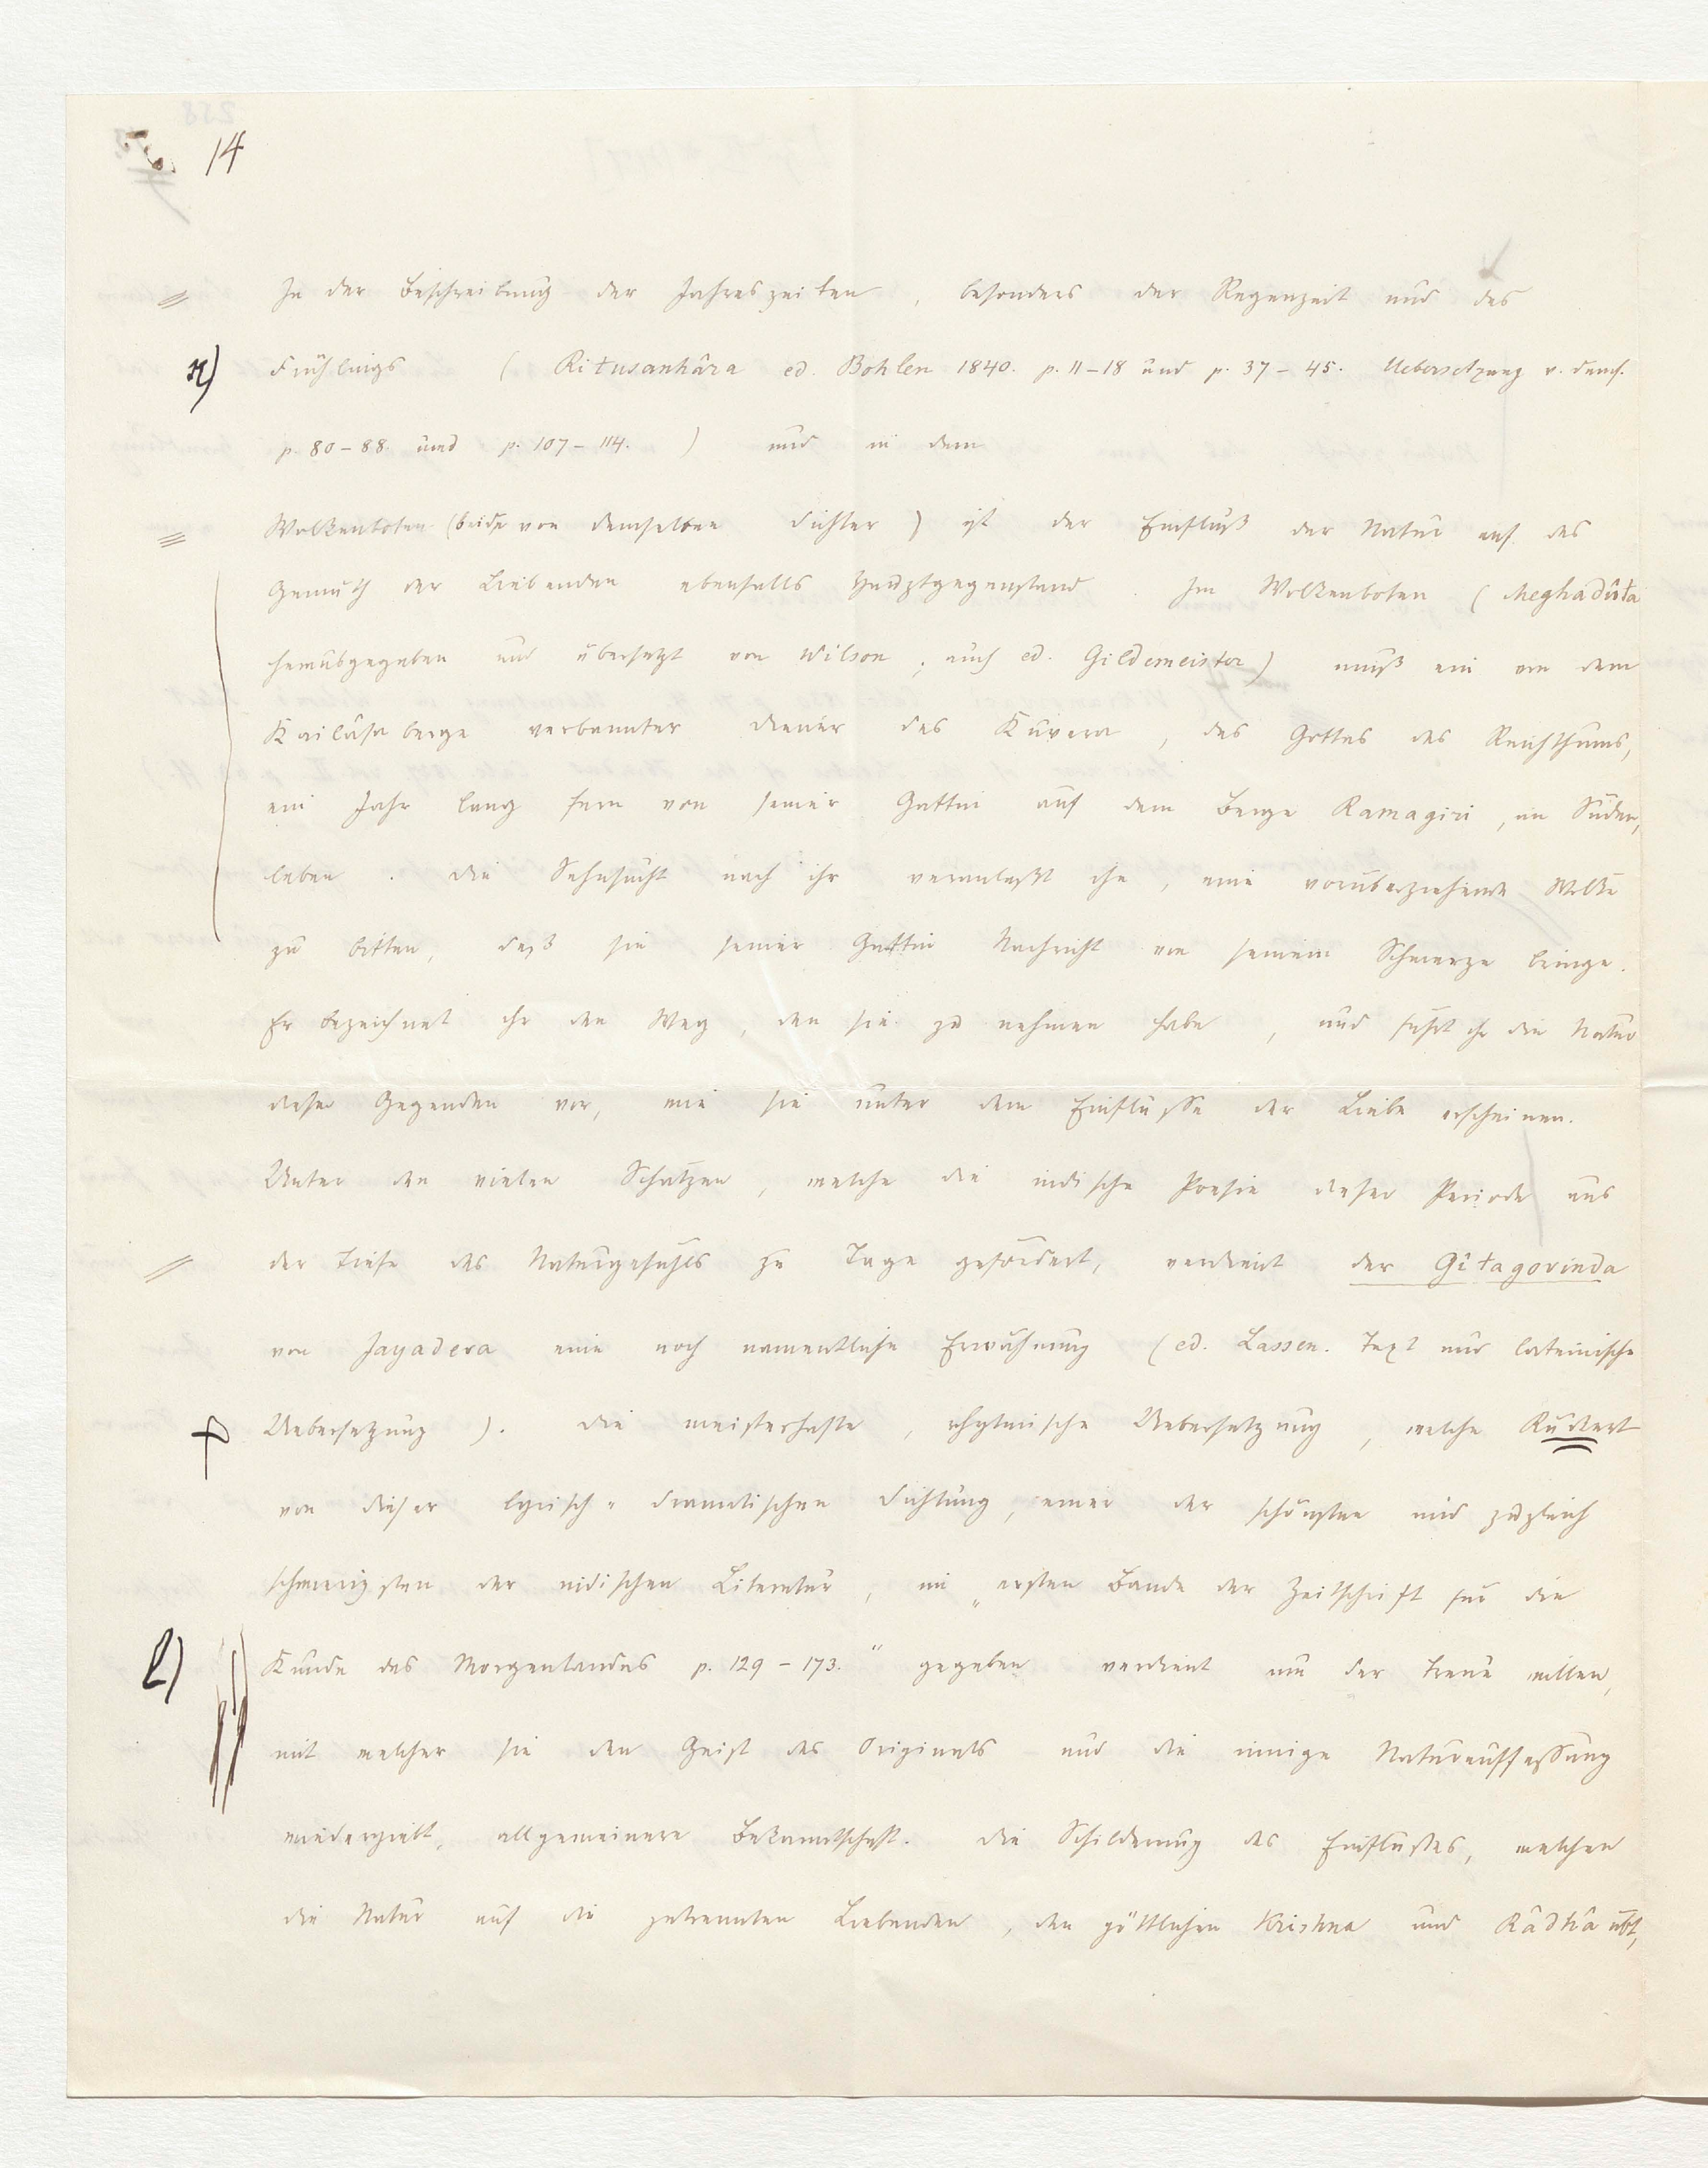 14
In der Beschreibung der Jahreszeiten, besonders der Regenzeit und des
Frühlings (Ritusanhâra ed. Bohlen 1840. p. 11–18 und p. 37–45. Uebersetzung v. dems.
p. 80–88. und p. 107–114.) und in dem
Wolkenboten (beide von demselben Dichter) ist der Einfluß der Natur auf das
Gemüth der Liebenden ebenfalls Hauptgegenstand. Im Wolkenboten (Meghadûta
herausgegeben und übersetzt von Wilson; auch ed. Gildemeister) muß ein von dem
Kailâsa berge verbannter Diener des Kuvera, des Gottes des Reichthums,
ein Jahr lang fern von seiner Gattin auf dem Berge Ramagiri, im Süden,
leben. Die Sehnsucht nach ihr veranlaßt ihn, eine vorüberziehende Wolke
zu bitten, daß sie seiner Gattin Nachricht von seinem Schmerze bringe.
Er bezeichnet ihr den Weg, den sie zu nehmen habe, und führt ihr die Natur
dieser Gegenden vor, wie sie unter dem Einflusse der Liebe erscheinen.
Unter den vielen Schätzen, welche die indische Poesie dieser Periode aus
der Tiefe des Naturgefühls zu Tage gefördert, verdient der Gîtagovinda
von Jayadeva eine noch namentliche Erwähnung (ed. Lassen. Text und lateinische
Uebersetzung). Die meisterhafte, rhytmische Uebersetzung, welche Rückert
von dieser lyrisch-dramatischen Dichtung, einer der schönsten und zugleich
schwierigsten der indischen Literatur, im „ersten Bande der Zeitschrift für die
l) Kunde des Morgenlandes p. 129–173.“ gegeben verdient um der Treue willen,
mit welcher sie den Geist des Originals und die innige Naturauffassung
wiedergiebt, allgemeinere Bekanntschaft. Die Schilderung des Einflusses, welchen
die Natur auf die getrennten Liebenden, den göttlichen Krishna und Râdhâ übt,